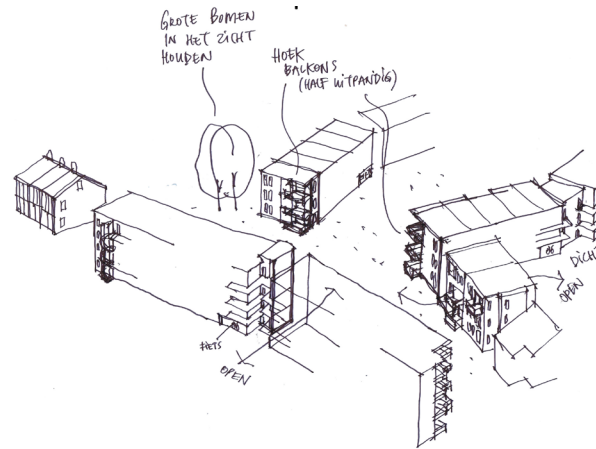 GROTE BOMEN
IN HET ZICHT
HOUDEN
HOEK
BALKONS
(HALF UITPANDIG)
DICHT
OPEN
FIETS
OPEN